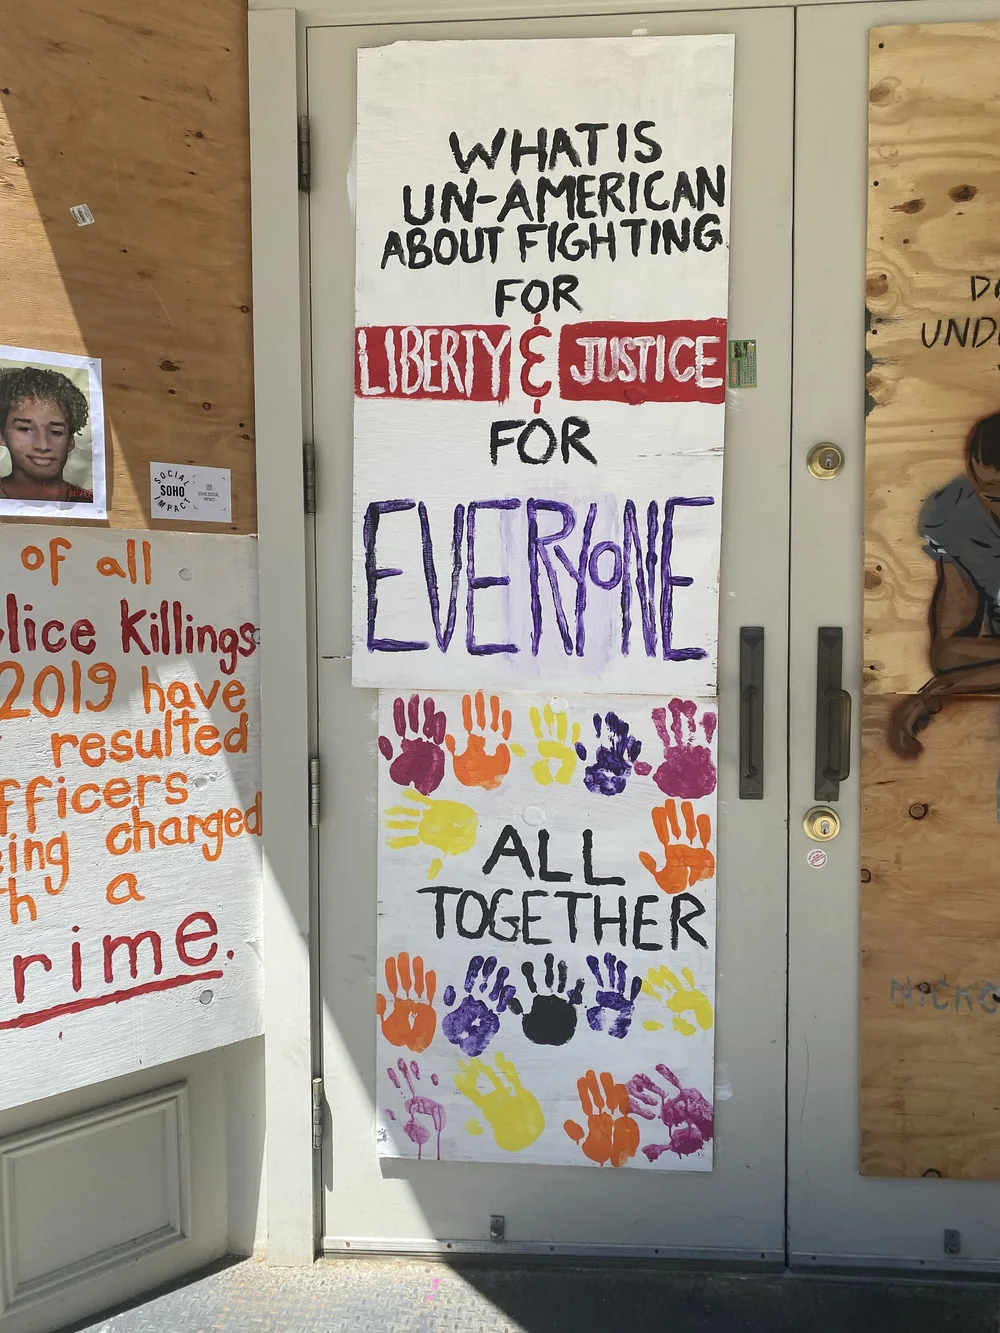 WHAT IS
UN-AMERICAN
ABOUT FIGHTING
FOR
LIBERTY & JUSTICE
FOR
EVERYONE
ALL
TOGETHER
of all
lice Killings
2019 have
resulted
fficers
ing charged
h a
rime.
SOCIAL
SOHO
IMPACT
UND
NICKO